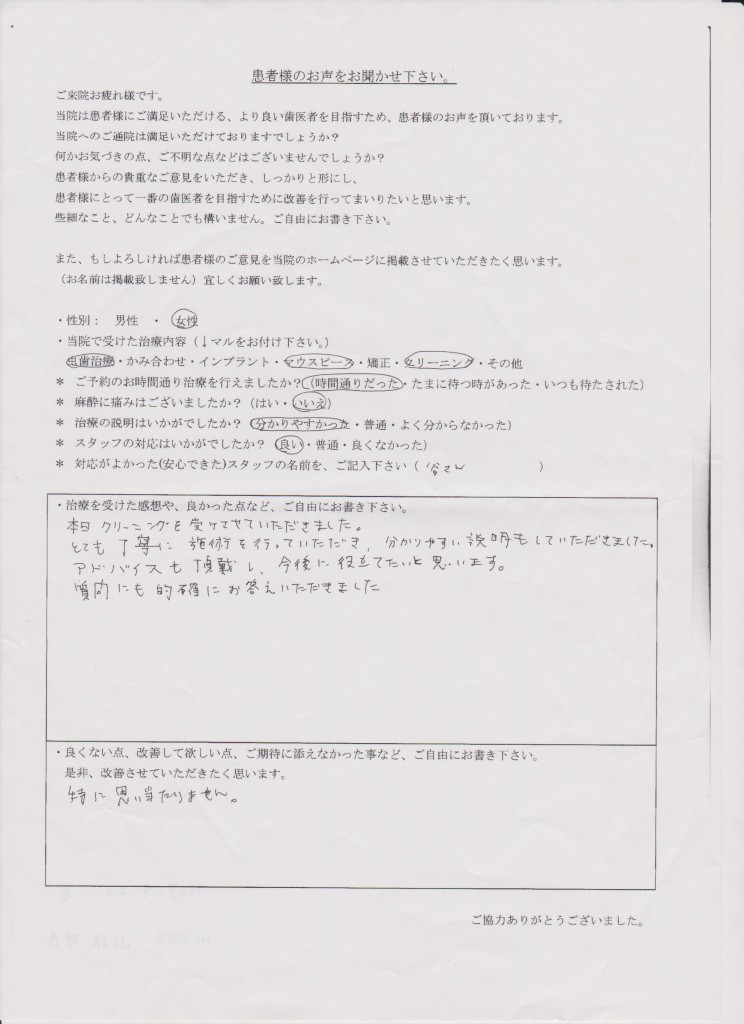 患者様のお声をお聞かせ下さい。
ご来院お疲れ様です。
当院は患者様にご満足いただける、より良い歯医者を目指すため、患者様のお声を頂いております。
当院へのご通院は満足いただけておりますでしょうか？
何かお気づきの点、ご不明な点などはございませんでしょうか？
患者様からの貴重なご意見をいただき、しっかりと形にし、
患者様にとって一番の歯医者を目指すために改善を行ってまいりたいと思います。
些細なこと、どんなことでも構いません。ご自由にお書き下さい。
また、もしよろしければ患者様のご意見を当院のホームページに掲載させていただきたく思います。
（お名前は掲載致しません）宜しくお願い致します。
・性別： 男性 ・ 女性
・当院で受けた治療内容（↓マルをお付け下さい。）
虫歯治療・かみ合わせ・インプラント・マウスピース・矯正・クリーニング・その他
＊ ご予約のお時間通り治療を行えましたか？（時間通りだった・たまに待つ時があった・いつも待たされた）
＊ 麻酔に痛みはございましたか？（はい・いいえ）
＊ 治療の説明はいかがでしたか？（分かりやすかった・普通・よく分からなかった）
＊ スタッフの対応はいかがでしたか？（良い・普通・良くなかった）
＊ 対応がよかった(安心できた)スタッフの名前を、ご記入下さい（ 谷さん ）
・治療を受けた感想や、良かった点など、ご自由にお書き下さい。
本日クリーニングを受けさせていただきました。
とても丁寧に施術を行っていただき、分かりやすい説明もしていただきました。
アドバイスも頂戴し、今後に役立てたいと思います。
質問にも的確にお答えいただきました
・良くない点、改善して欲しい点、ご期待に添えなかった事など、ご自由にお書き下さい。
是非、改善させていただきたく思います。
特に思い当たりません。
ご協力ありがとうございました。